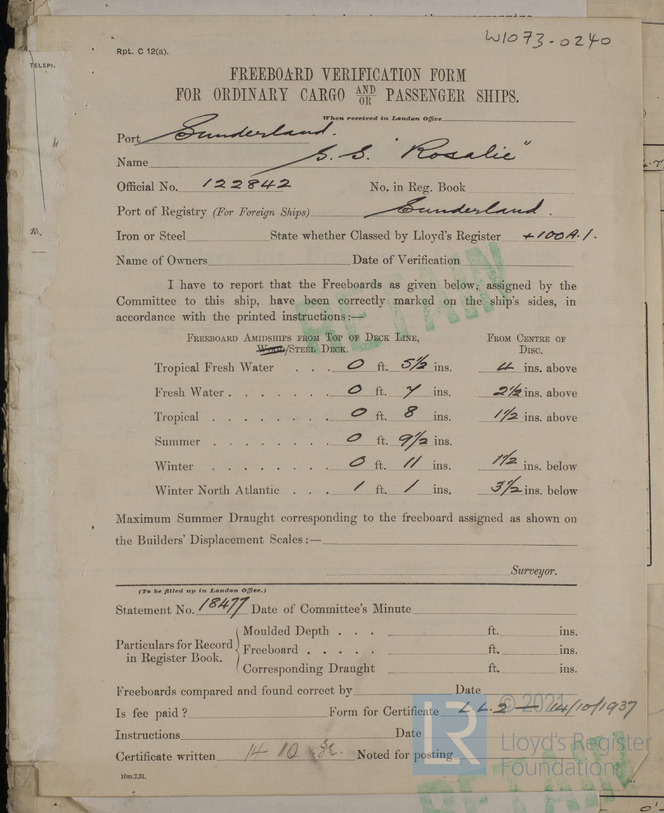 W1073-0240
Rpt. C 12(a).
TELEPH.
FREEBOARD VERIFICATION FORM
FOR ORDINARY CARGO AND/OR PASSENGER SHIPS.
When received in London Office
Port Sunderland.
Name S.S. "Rosalie"
Official No. 122842 No. in Reg. Book
Port of Registry (For Foreign Ships) Sunderland.
Iron or Steel State whether Classed by Lloyd's Register +100A.1.
Name of Owners Date of Verification
I have to report that the Freeboards as given below, assigned by the
Committee to this ship, have been correctly marked on the ship's sides, in
accordance with the printed instructions:—
RETAIN
FREEBOARD AMIDSHIPS FROM TOP OF DECK LINE, FROM CENTRE OF
WOOD/STEEL DECK. DISC.
Tropical Fresh Water . . . 0 ft. 5½ ins. 4 ins. above
Fresh Water . . . . . . . 0 ft. 7 ins. 2½ ins. above
Tropical . . . . . . . . 0 ft. 8 ins. 1½ ins. above
Summer . . . . . . . . 0 ft. 9½ ins.
Winter . . . . . . . . 0 ft. 11 ins. 1½ ins. below
Winter North Atlantic . . . 1 ft. 1 ins. 3½ ins. below
Maximum Summer Draught corresponding to the freeboard assigned as shown on
the Builders' Displacement Scales:—
Surveyor.
(To be filled up in London Office.)
Statement No. 18477 Date of Committee's Minute
Particulars for Record in Register Book.
Moulded Depth . . . ft. ins.
Freeboard . . . . . ft. ins.
Corresponding Draught ft. ins.
Freeboards compared and found correct by Date
Is fee paid? Form for Certificate L.L.2 — 14/10/1937
Instructions Date
Certificate written 14 10 Noted for posting
10m.7,31.
© 2021
LR
Lloyd's Register
Foundation
RETAIN